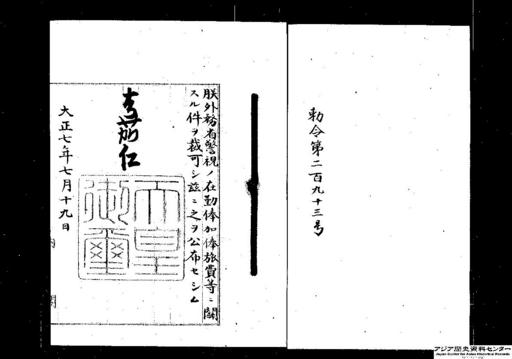 勅令第二百九十三号
朕外務省警視ノ在勤俸加俸旅費等ニ関
スル件ヲ裁可シ茲ニ之ヲ公布セシム
嘉仁
天皇
御璽
大正七年七月十九日
内閣
アジア歴史資料センター
Japan Center for Asian Historical Records